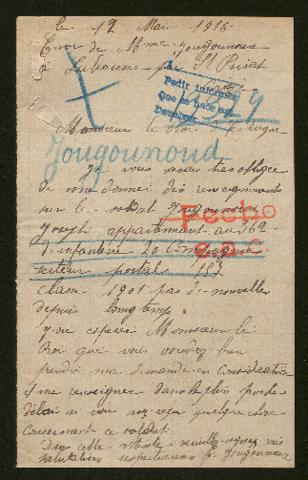 le 12 Mai 1915
Envoi de Mme Jougounoud
à par St Privat
Pedir informes
Que se hace
Devolver
Monsieur le Roi
Jougounoud
vous obligé
de me donner des renseignements
sur le soldat Jougounoux
Fecho
Joseph appartenant au 162
d'infanterie 20 Compagnie
secteur postal 187
E.P.C.
classe 1901 pas de nouvelles
depuis longtemps
J'ose espérer Monsieur le
Roi que vous voudrez bien
prendre ma demande en considération
et me renseigner dans le plus proche
délai si vous avez quelque chose
concernant ce soldat
Dans cette attente veuillez agréer mes
salutations respectueuses Jougounoux